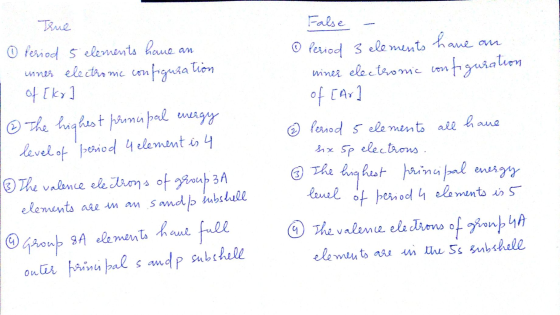 True
① Period 5 elements have an
inner electronic configuration
of [Kr]
② The highest principal energy
level of period 4 element is 4
③ The valence electrons of group 3A
elements are in an s and p subshell
④ Group 8A elements have full
outer principal s and p subshell
False —
① Period 3 elements have an
inner electronic configuration
of [Ar]
② Period 5 elements all have
six 5p electrons.
③ The highest principal energy
level of period 4 elements is 5
④ The valence electrons of group 4A
elements are in the 5s subshell